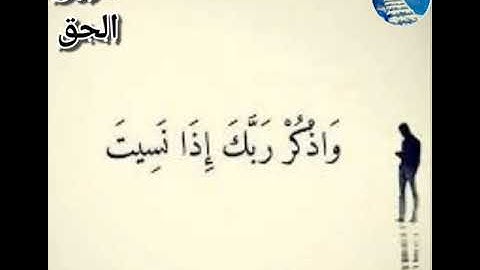 الحق
وَاذْكُرْ رَبَّكَ إِذَا نَسِيتَ